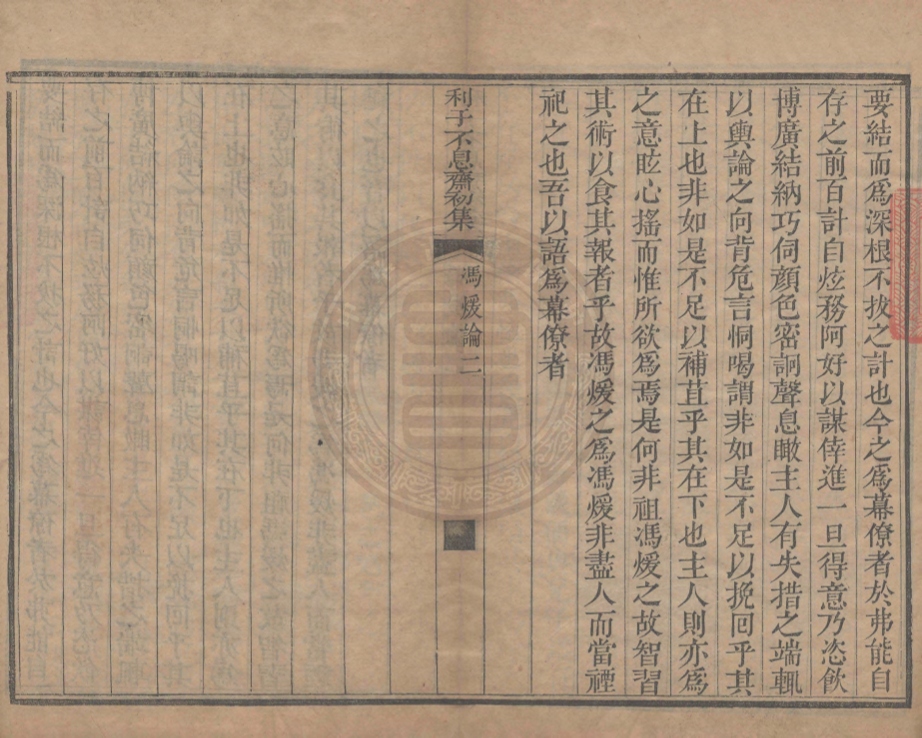 要結而爲深根不拔之計也今之爲幕僚者於弗能自
存之前百計自炫務阿好以謀倖進一旦得意乃恣飲
博廣結納巧伺顏色密詗聲息瞰主人有失措之端輒
以輿論之向背危言恫喝謂非如是不足以挽回乎其
在上也非如是不足以補苴乎其在下也主人則亦爲
之意眩心搖而惟所欲爲焉是何非祖馮煖之故智習
其術以食其報者乎故馮煖之爲馮煖非盡人而當禋
祀之也吾以語爲幕僚者
利于不息齋初集
馮煖論二